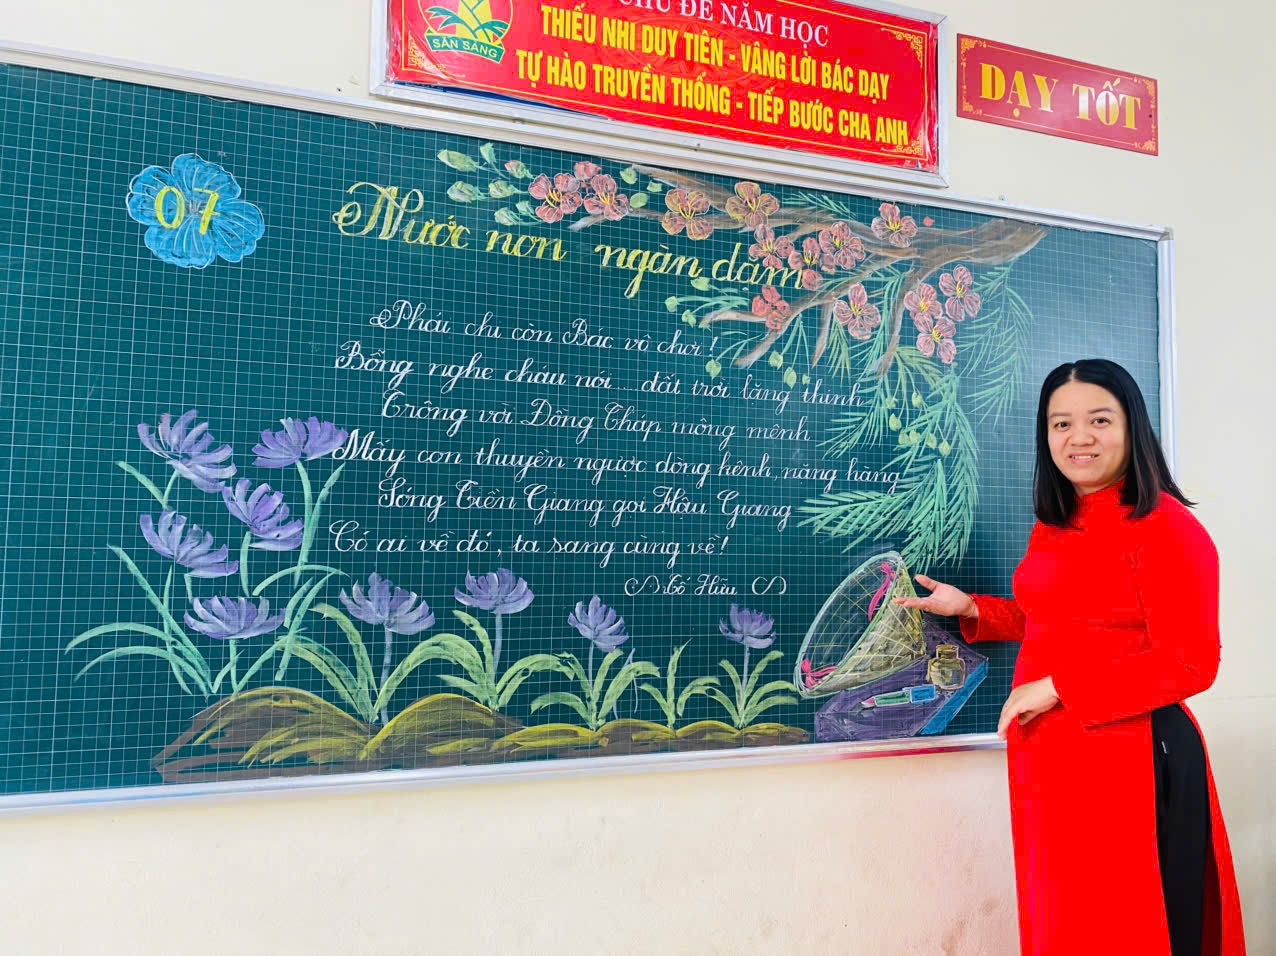 CHỦ ĐỀ NĂM HỌC
THIẾU NHI DUY TIÊN - VÂNG LỜI BÁC DẠY
TỰ HÀO TRUYỀN THỐNG - TIẾP BƯỚC CHA ANH
SẴN SÀNG
DẠY TỐT
07
Nước non ngàn dặm
Phải chi còn Bác vô chơi!
Bỗng nghe cháu nói ... đất trời lặng thinh
Trông vời Đồng Tháp mông mênh
Mấy con thuyền ngược dòng kênh, nặng hàng
Sóng Tiền Giang gọi Hậu Giang
Có ai về đó, ta sang cùng về!
Tố Hữu